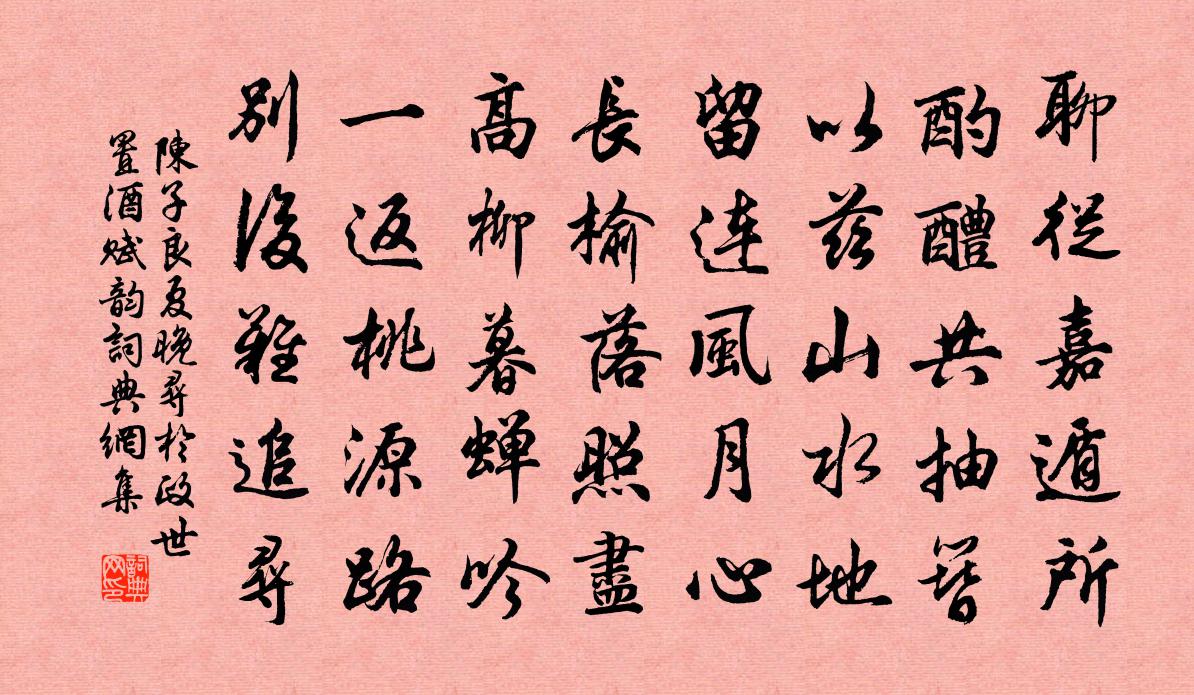 聊從嘉遁所
酌醴共抽簪
以茲山水地
留连風月心
長榆落照盡
高柳暮蝉吟
一返桃源路
別後難追尋
陳子良夏晚尋於政世
置酒赋韵詞典網集
詞典網印